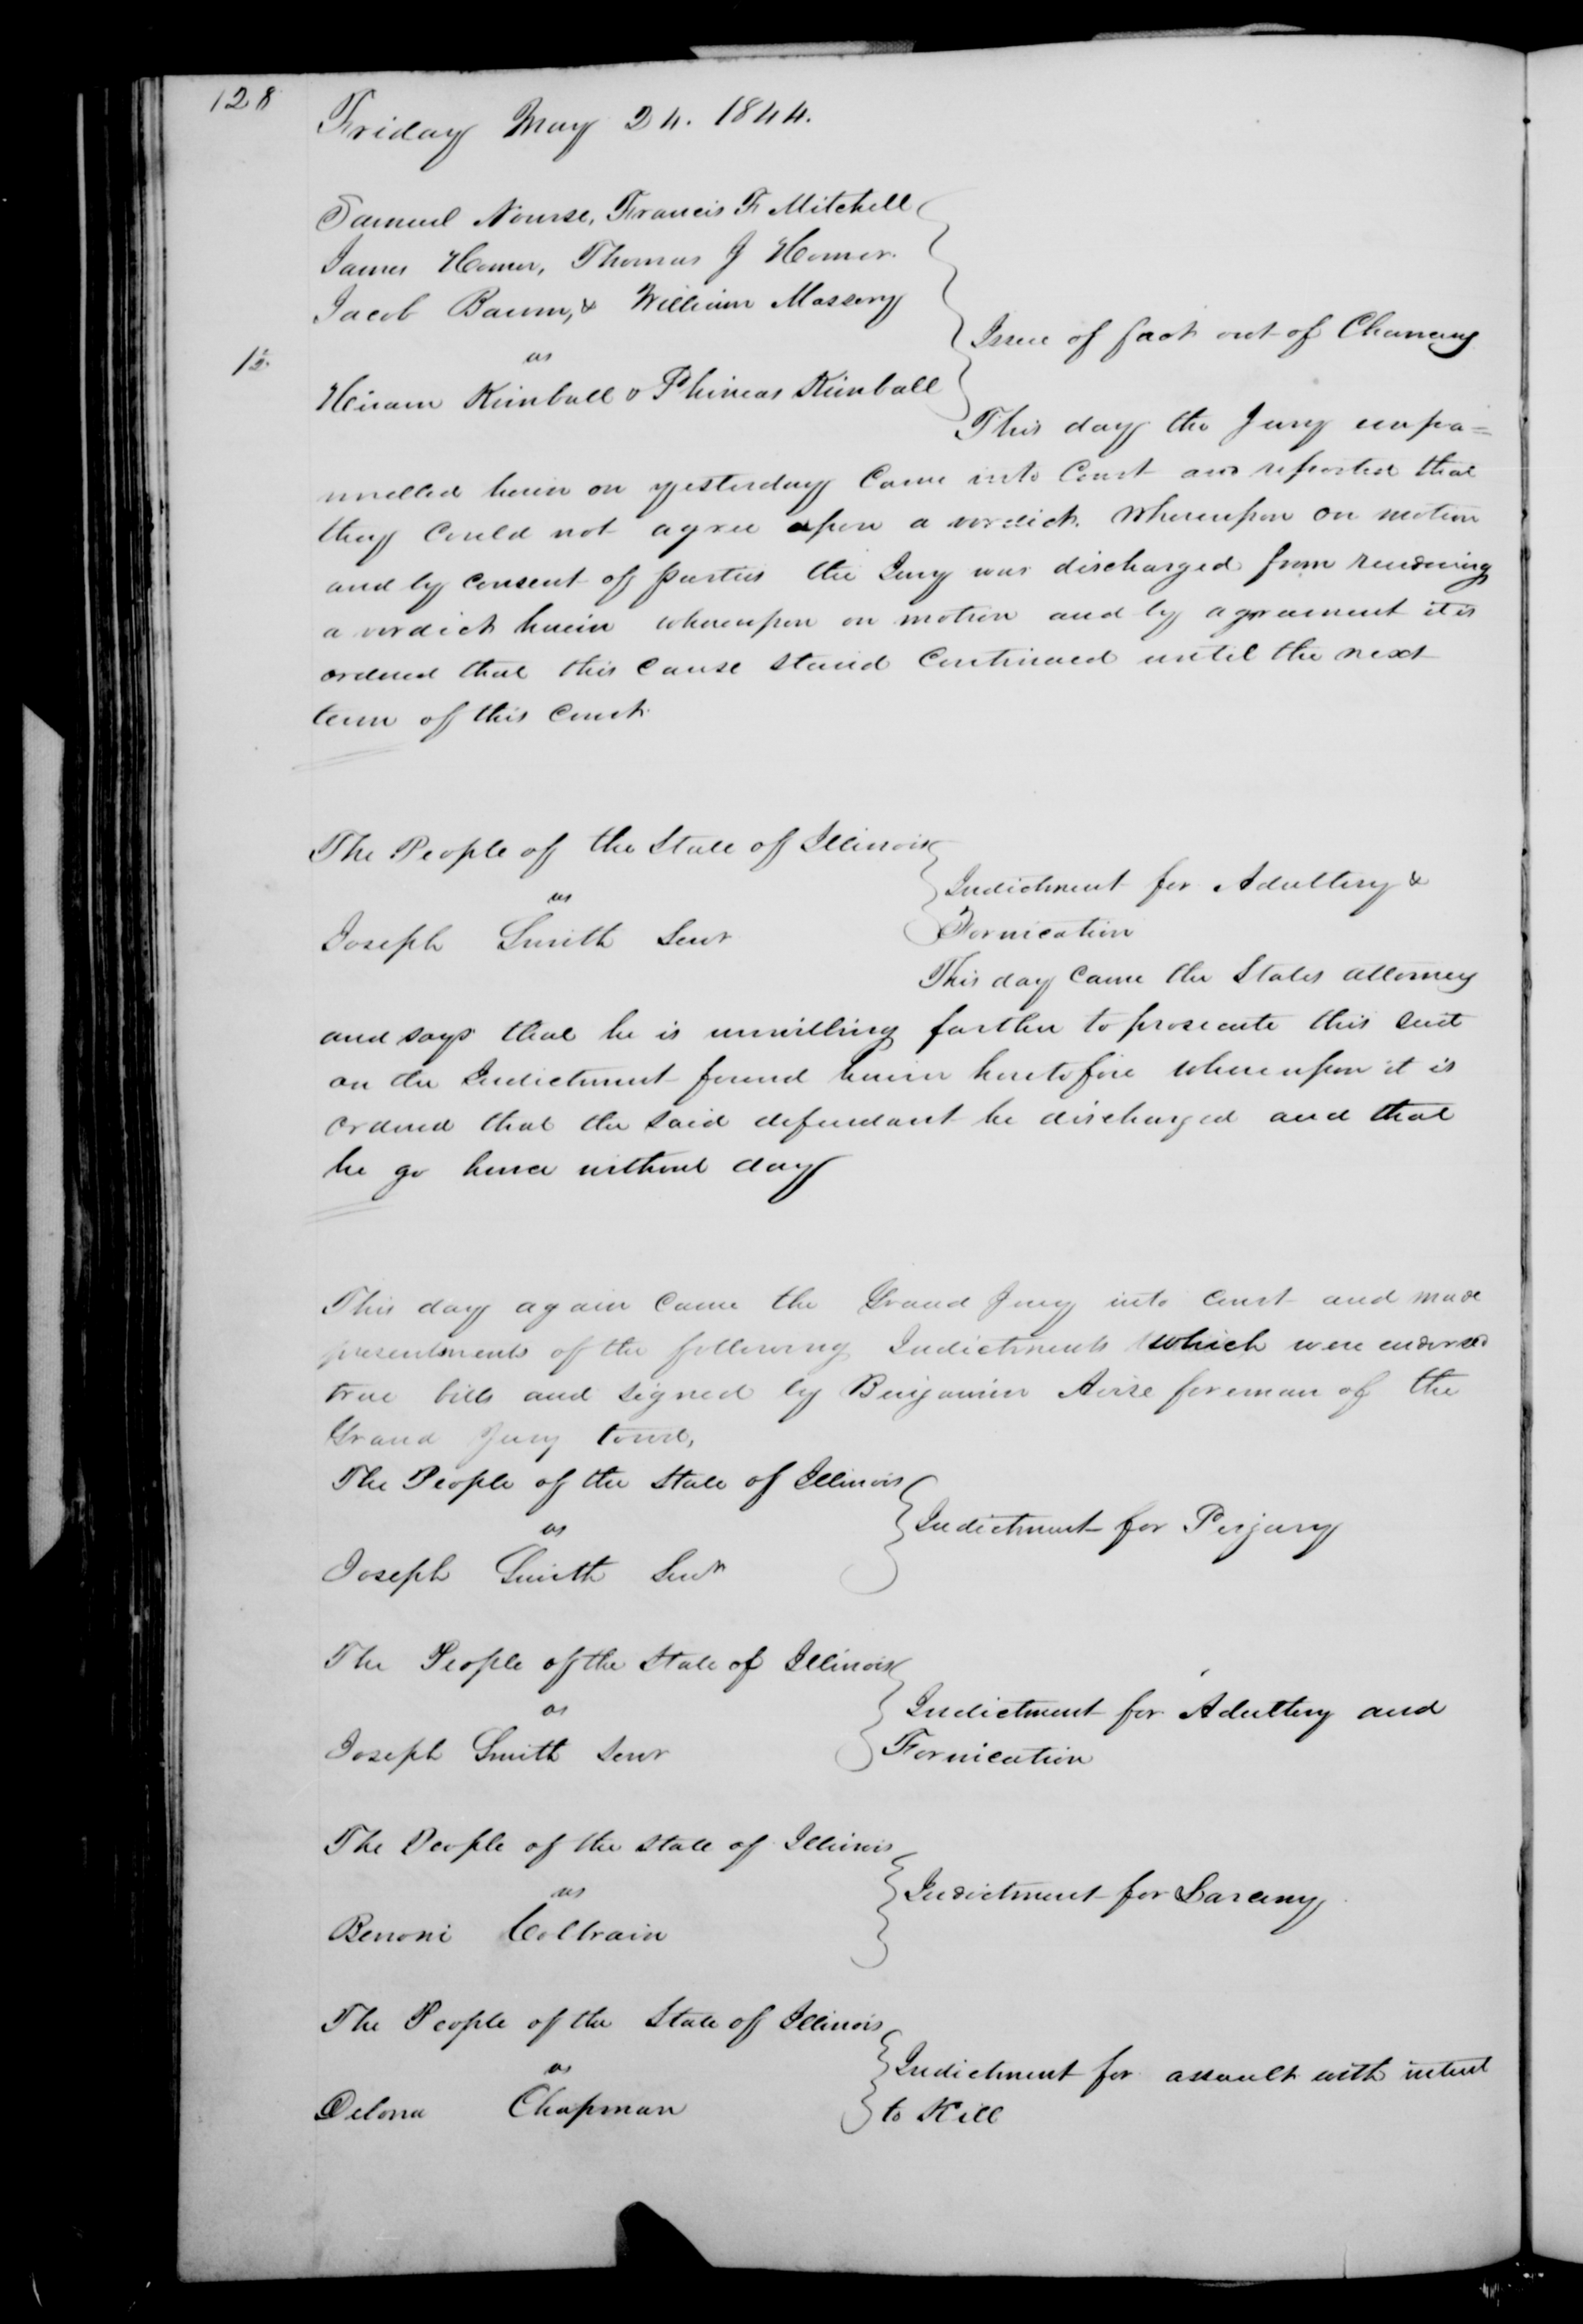 128
Friday May 24. 1844.
Samuel Nourse, Francis F Mitchell
James Homer, Thomas J Homer.
Jacob Baum, & William Massery
Issue of fact out of Chancery
vs
Hiram Kimball & Phineas Kimball
This day the Jury empa=
nnelled herein on yesterday Came into Court and reported that
they Could not agree upon a verdict. Whereupon on motion
and by consent of parties the Jury was discharged from rendering
a verdict herein whereupon on motion and by agreement it is
ordered that this Cause Stand Continued until the next
term of this Court
The People of the State of Illinois
Indictment for Adultery &
vs
Fornication
Joseph Smith Senr
This day Came the States attorney
and says that he is unwilling further to prosecute this Suit
on the Indictment found herein heretofore whereupon it is
ordered that the said defendant be discharged and that
he go hence without day
This day again Came the Grand Jury into Court and made
presentments of the following Indictments which were endorsed
true bills and Signed by Benjamin Avise foreman of the
Grand Jury towit,
The People of the State of Illinois
Indictment for Perjury
vs
Joseph Smith Senr
The People of the State of Illinois
Indictment for Adultery and
vs
Joseph Smith Senr
Fornication
The People of the State of Illinois
Indictment for Larceny
vs
Benoni Coltrain
The People of the State of Illinois
Indictment for assault with intent
vs
Delona Chapman
to Kill